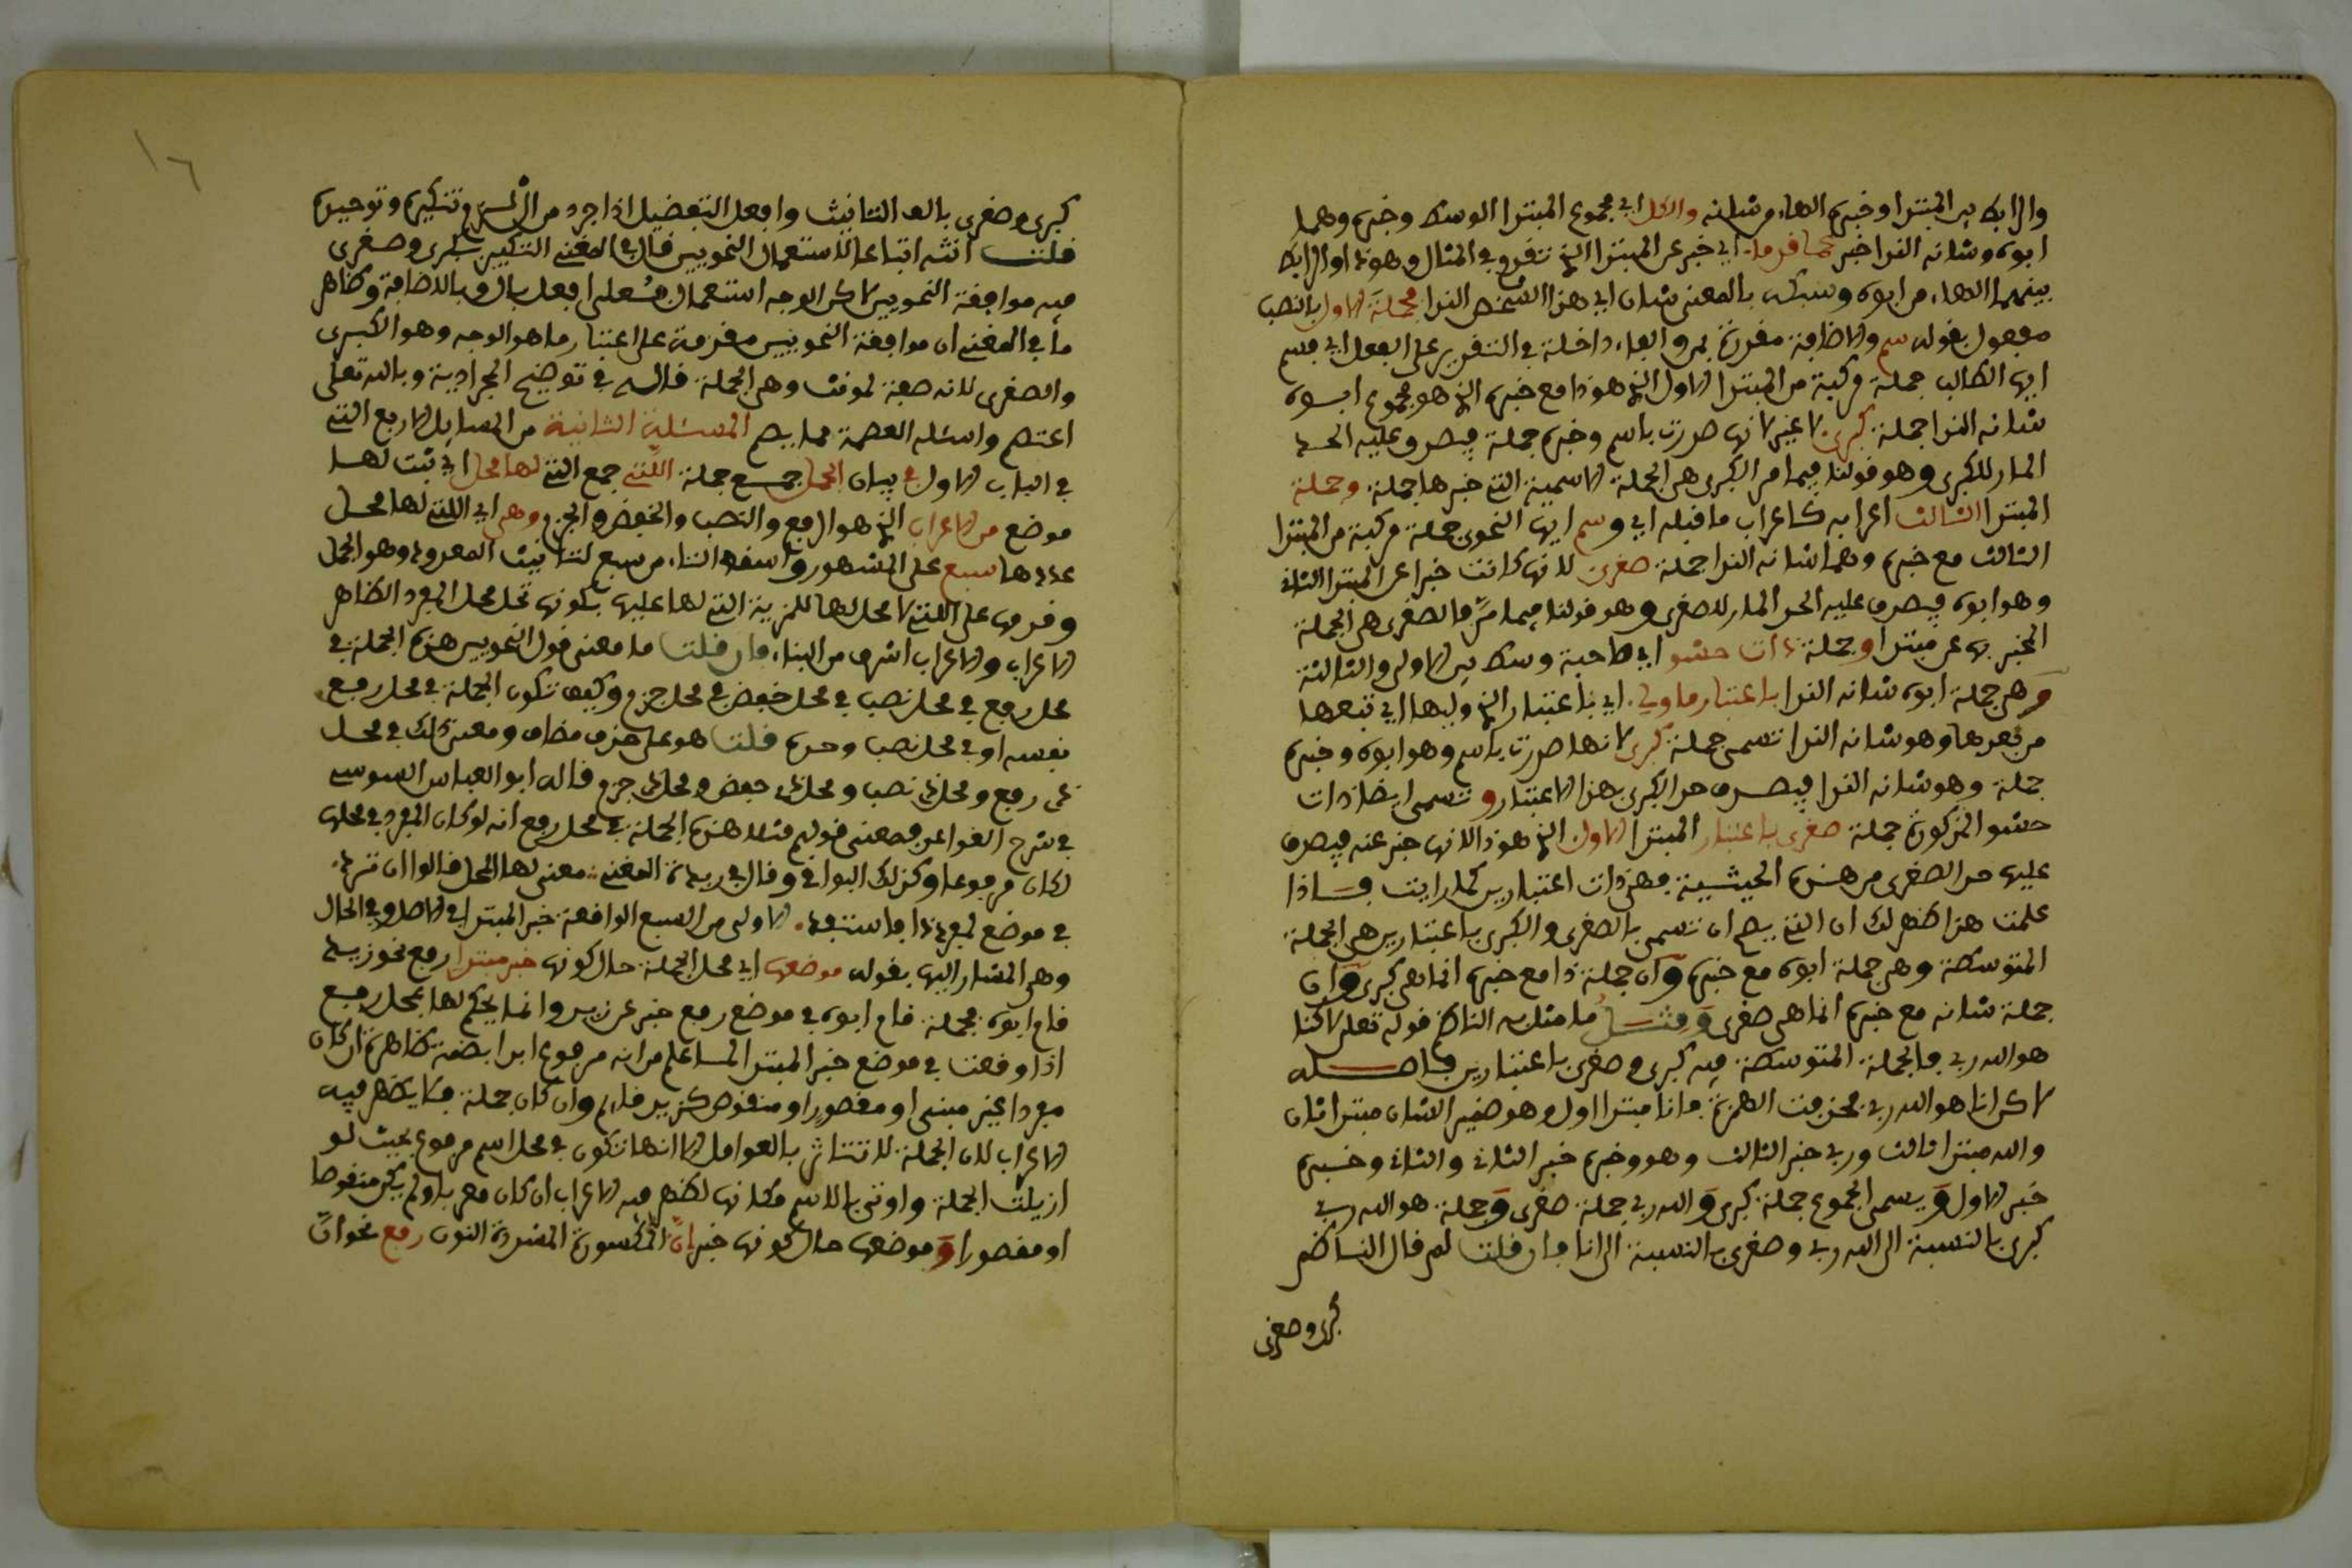 والرابط بين المبتدا وخبره الهاء من شانه والكل اي مجموع المبتدا الوسط وخبره وهما
ابوه وشانه الندا خبر عما قدما اي خبر عن المبتدا الذي تقدم في المثال وهو ذا والرابط
بينهما الهاء من ابوه وسبكه بالمعنى شان اي هذا الشخص الندا فجملة الاول بالنصب
مفعول بقوله سم والاضافة مقدرة بمن والفاء داخلة في التقدير على الفعل اي فسم
ايها الطالب جملة مركبة من المبتدا الاول الذي هو ذا مع خبره الذي هو مجموع ابوه
شانه الندا جملة كبرى لا غير لانها صدرت باسم وخبره جملة فيصدق عليه الحد
المار للكبرى وهو قولنا فيما مر الكبرى هي الجملة الاسمية التي خبرها جملة وجملة
المبتدا الثالث اعرابه كاعراب ما قبله اي وسم ايها النحوي جملة مركبة من المبتدا
الثالث مع خبره وهما شانه الندا جملة صغرى لانها كانت خبرا عن المبتدا الثاني
وهو ابوه فيصدق عليه الحد المار للصغرى وهو قولنا فيما مر والصغرى هي الجملة
المخبر بها عن مبتدا وجملة ذات حشو اي صاحبة وسط بين الاولى والثالثة
وهي جملة ابوه شانه الندا باعتبار ما ولي اي باعتبار الذي وليها اي تبعها
من بعدها وهو شانه الندا تسمى جملة كبرى لانها صدرت باسم وهو ابوه وخبره
جملة وهو شانه الندا فيصدق حد الكبرى بهذا الاعتبار وتسمى ايضا ذات
حشو المذكورة جملة صغرى باعتبار المبتدا الاول الذي هو ذا لانها خبر عنه فيصدق
عليها حد الصغرى من هذه الحيثية فهي ذات اعتبارين كما رايت فاذا
علمت هذا ظهر لك ان التي يصح ان تسمى بالصغرى والكبرى باعتبارين هي الجملة
المتوسطة وهي جملة ابوه مع خبره وان جملة ذا مع خبره انما هي كبرى وان
جملة شانه مع خبره انما هي صغرى ومثل ما مثل به الناظم قوله تعلى لاكنا
هو الله ربي فالجملة المتوسطة فيه كبرى وصغرى باعتبارين فاصله
لاكن انا هو الله ربي فحذفت الهمزة فانا مبتدا اول وهو ضمير الشان مبتدا ثان
والله مبتدا ثالث وربي خبر الثالث وهو وخبره خبر الثاني والثاني وخبره
خبر الاول ويسمى المجموع جملة كبرى والله ربي جملة صغرى وجملة هو الله ربي
كبرى بالنسبة الى الله ربي وصغرى بالنسبة الى انا فان قلت لم قال الناظم
كبرى وصغرى
١٦
كبرى وصغرى بالف التانيث وافعل التفضيل اذا جرد من ال لزم تذكيره وتوحيده
قلت انثه اتباعا لاستعمال النحويين قال في المغني التكبير كبرى وصغرى
فيه موافقة النحويين لاكن الوجه استعمال فعلى افعل بال وبالاضافة وظاهر
ما في المغني ان موافقة النحويين مقدمة على اعتبار ما هو الوجه وهو الكبرى
والصغرى لانه صفة لمونث وهي الجملة قاله في توضيح الجرادية وبالله تعلى
اعتصم واسئله العصمة مما يصم المسئلة الثانية من المسايل الاربع التي
في الباب الاول في بيان الجمل جمع جملة اللتي جمع التي لها محل اي ثبت لها
موضع من الاعراب الذي هو الرفع والنصب والخفض والجزم وهي اي اللتي لها محل
عددها سبع على المشهور واسقط التاء من سبع لتانيث المعدود وهو الجمل
وقدمها على اللتي لا محل لها للمزية التي لها عليها بكونها تحل محل المفرد الظاهر
الاعراب والاعراب اشرف من البناء فان قلت ما معنى قول النحويين هذه الجملة في
محل رفع في محل نصب في محل خفض في محل جزم وكيف تكون الجملة في محل رفع
نفسه او في محل نصب وحده قلت هو على حذف مضاف ومعنى ذلك في محل
ذي رفع ومحل ذي نصب ومحل ذي خفض ومحل ذي جزم قاله ابو العباس السوسي
في شرح القواعد فمعنى قولهم مثلا هذه الجملة في محل رفع انه لو كان المفرد في محلها
لكان مرفوعا وكذلك البواقي وقال في المغني معنى لها المحل قالوا ان ترد
في موضع لمفرد ذا فاستفد الاولى من السبع الواقعة خبر المبتدا في الاصل وفي الحال
وهي المشار اليها بقوله موضعها اي محل الجملة حال كونها خبر مبتدا رفع نحو زيد
قام ابوه فجملة قام ابوه في موضع رفع خبر عن زيد وانما يحكم لها بمحل رفع
اذا وقعت في موضع خبر المبتدا لما علم من انه مرفوع ابدا بضمة ظاهرة ان كان
مفردا غير مبني او مقصور او منقوص كزيد قايم وان كان جملة فلا يظهر فيه
الاعراب لان الجملة لا تتاثر بالعوامل الا انها تكون في محل اسم مرفوع بحيث لو
ازيلت الجملة واوتي بالاسم مكانها لظهر فيه الاعراب ان كان معربا ولم يكن منقوصا
او مقصورا وموضعها حال كونها خبر ان المكسورة المشددة النون رفع نحو ان